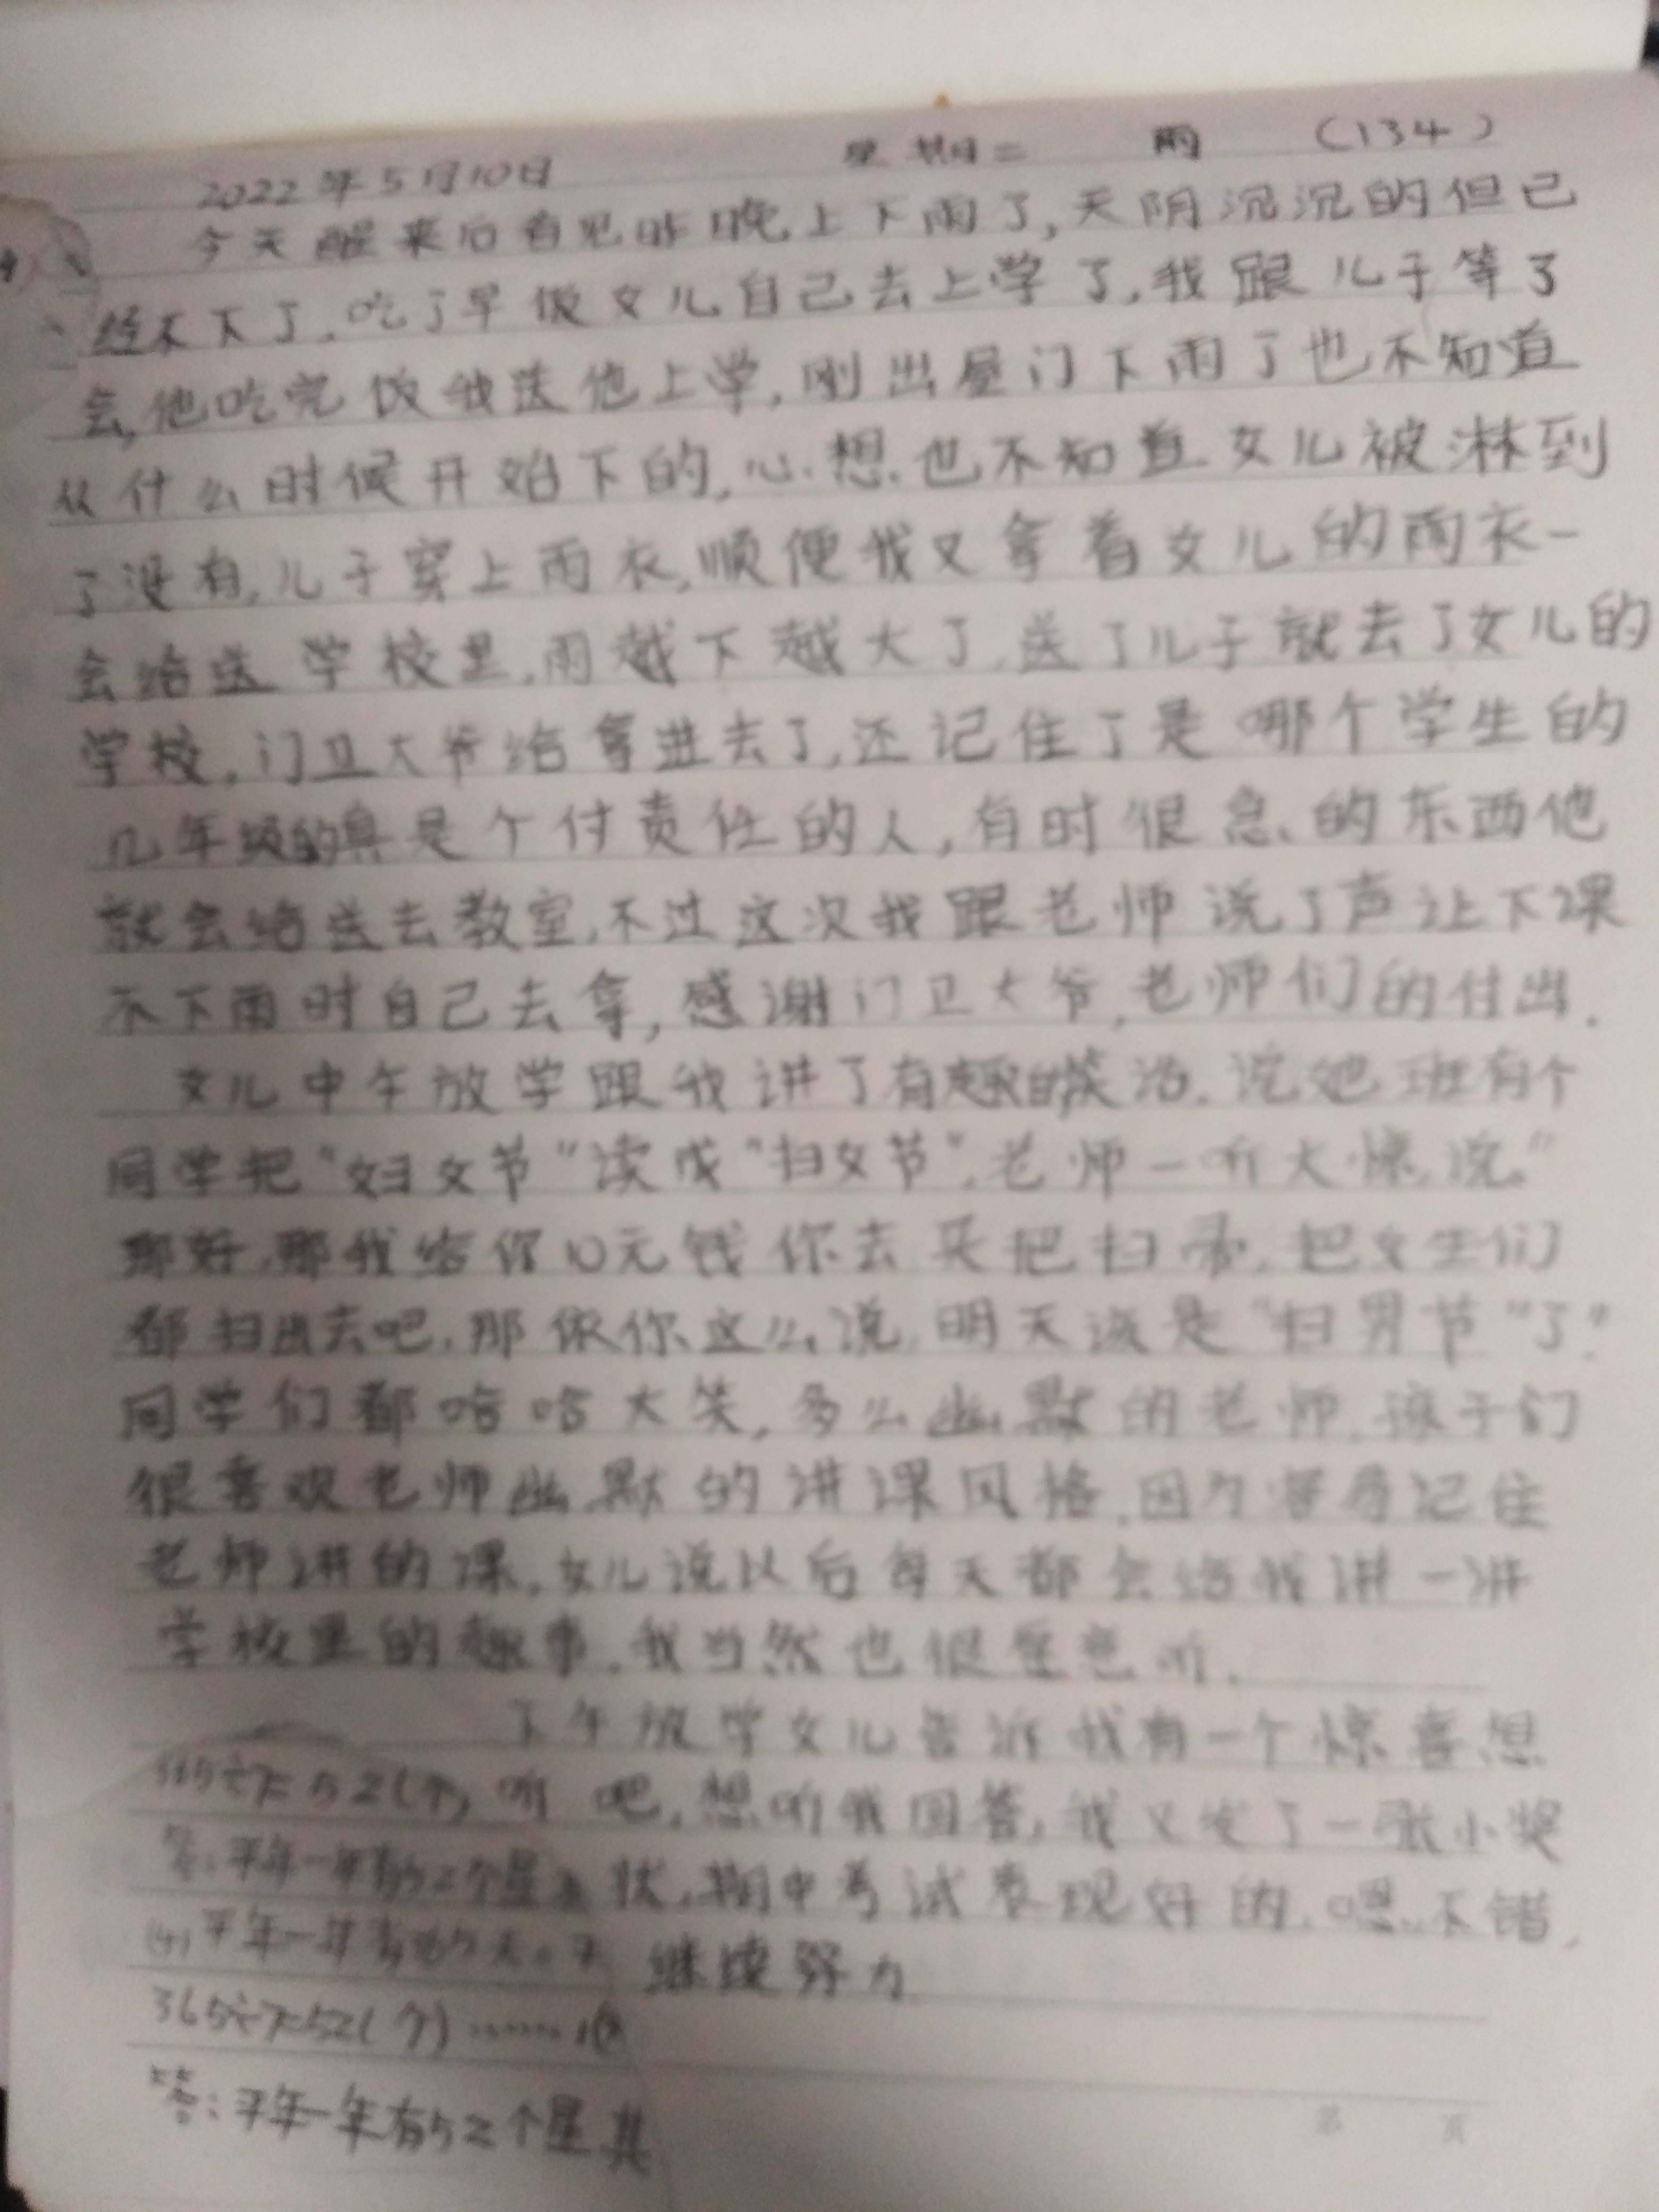 2022年5月10日 星期二 雨 (134)
今天醒来后看见昨晚上下雨了,天阴沉沉的但已
经不下了.吃了早饭女儿自己去上学了,我跟儿子等了
会,他吃完饭我送他上学,刚出屋门下雨了也不知道
从什么时候开始下的,心想也不知道女儿被淋到
了没有,儿子穿上雨衣,顺便我又拿着女儿的雨衣一
会给送学校里,雨越下越大了,送了儿子就去了女儿的
学校,门卫大爷给拿进去了,还记住了是哪个学生的
几年级的真是个付责任的人,有时很急的东西他
就会给送去教室,不过这次我跟老师说了声让下课
不下雨时自己去拿,感谢门卫大爷,老师们的付出.
女儿中午放学跟我讲了有趣的笑话.说她班有个
同学把"妇女节"读成"扫女节",老师一听大惊,说"
那好,那我给你10元钱你去买把扫帚,把女生们
都扫出去吧,那依你这么说,明天该是"扫男节"了"
同学们都哈哈大笑,多么幽默的老师,孩子们
很喜欢老师幽默的讲课风格,因为容易记住
老师讲的课,女儿说以后每天都会给我讲一讲
学校里的趣事,我当然也很愿意听.
下午放学女儿告诉我有一个惊喜想
听吧,想听我回答,我又发了一张小奖
状,期中考试表现好的,嗯..不错,
继续努力
365÷7=52(个)
答:平年一年有52个星
(4)平年一年有
365÷7=52(个)……1
答:平年一年有52个星其
第 页